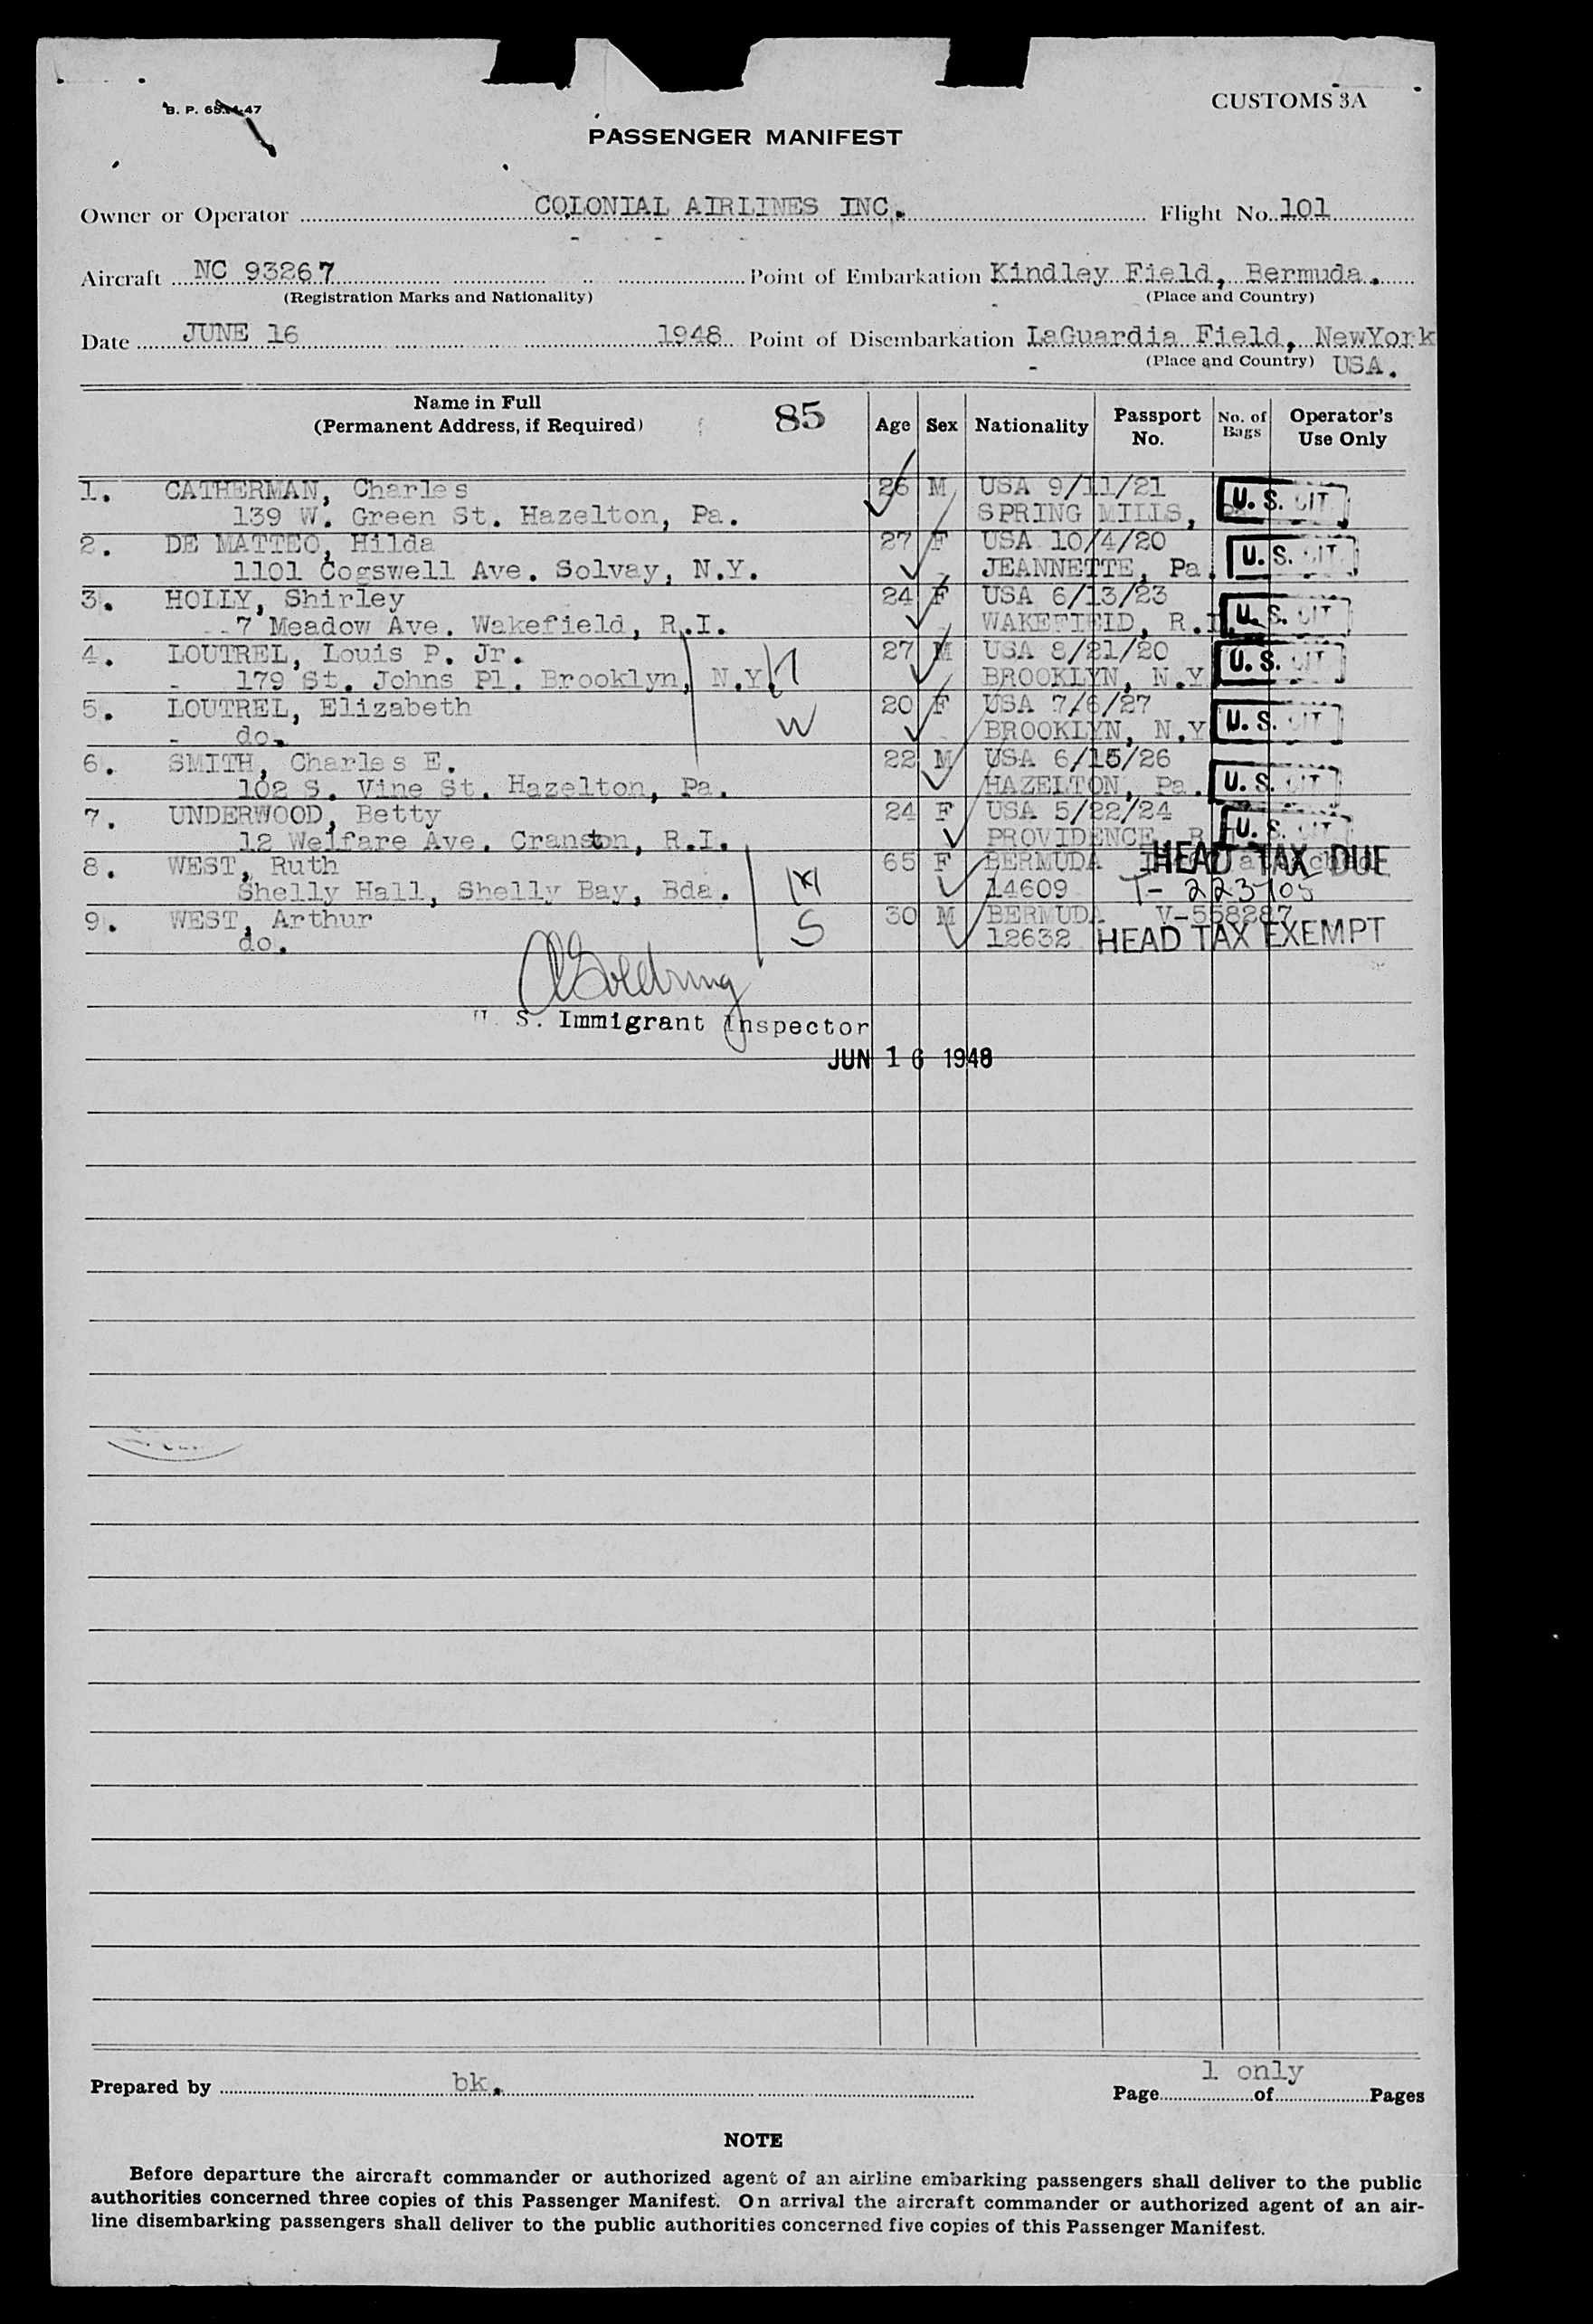 CUSTOMS 3A
PASSENGER MANIFEST
Owner or Operator COLONIAL AIRLINES INC. Flight No. 101
Aircraft NC 93267 Point of Embarkation Kindley Field, Bermuda.
(Registration Marks and Nationality) (Place and Country)
Date JUNE 16 1948 Point of Disembarkation LaGuardia Field, NewYork
(Place and Country) USA.
Name in Full
(Permanent Address, if Required) 85 Age Sex Nationality Passport No. No. of Bags Operator's Use Only
1. CATHERMAN, Charles 26 M USA 9/11/21 U. S. CIT
139 W. Green St. Hazelton, Pa. SPRING MILLS,
2. DE MATTEO, Hilda 27 F USA 10/4/20 U. S. CIT
1101 Cogswell Ave. Solvay, N.Y. JEANNETTE, Pa.
3. HOLLY, Shirley 24 F USA 6/13/23 U. S. CIT
7 Meadow Ave. Wakefield, R.I. WAKEFIELD, R.I.
4. LOUTREL, Louis P. Jr. 27 M USA 8/21/20 U. S. CIT
179 St. Johns Pl. Brooklyn, N.Y. BROOKLYN, N.Y
5. LOUTREL, Elizabeth 20 F USA 7/6/27 U. S. CIT
do. W BROOKLYN, N.Y
6. SMITH, Charles E. 22 M USA 6/15/26
102 S. Vine St. Hazelton, Pa. HAZELTON, Pa. U. S. CIT
7. UNDERWOOD, Betty 24 F USA 5/22/24
12 Welfare Ave. Cranston, R.I. PROVIDENCE, R U. S. CIT
8. WEST, Ruth 65 F BERMUDA HEAD TAX DUE
Shelly Hall, Shelly Bay, Bda. 14609 T-223705
9. WEST, Arthur S 30 M BERMUDA V-558287
do. 12632 HEAD TAX EXEMPT
U. S. Immigrant Inspector
JUN 16 1948
Prepared by bk. 1 only
Page of Pages
NOTE
Before departure the aircraft commander or authorized agent of an airline embarking passengers shall deliver to the public
authorities concerned three copies of this Passenger Manifest. On arrival the aircraft commander or authorized agent of an air-
line disembarking passengers shall deliver to the public authorities concerned five copies of this Passenger Manifest.